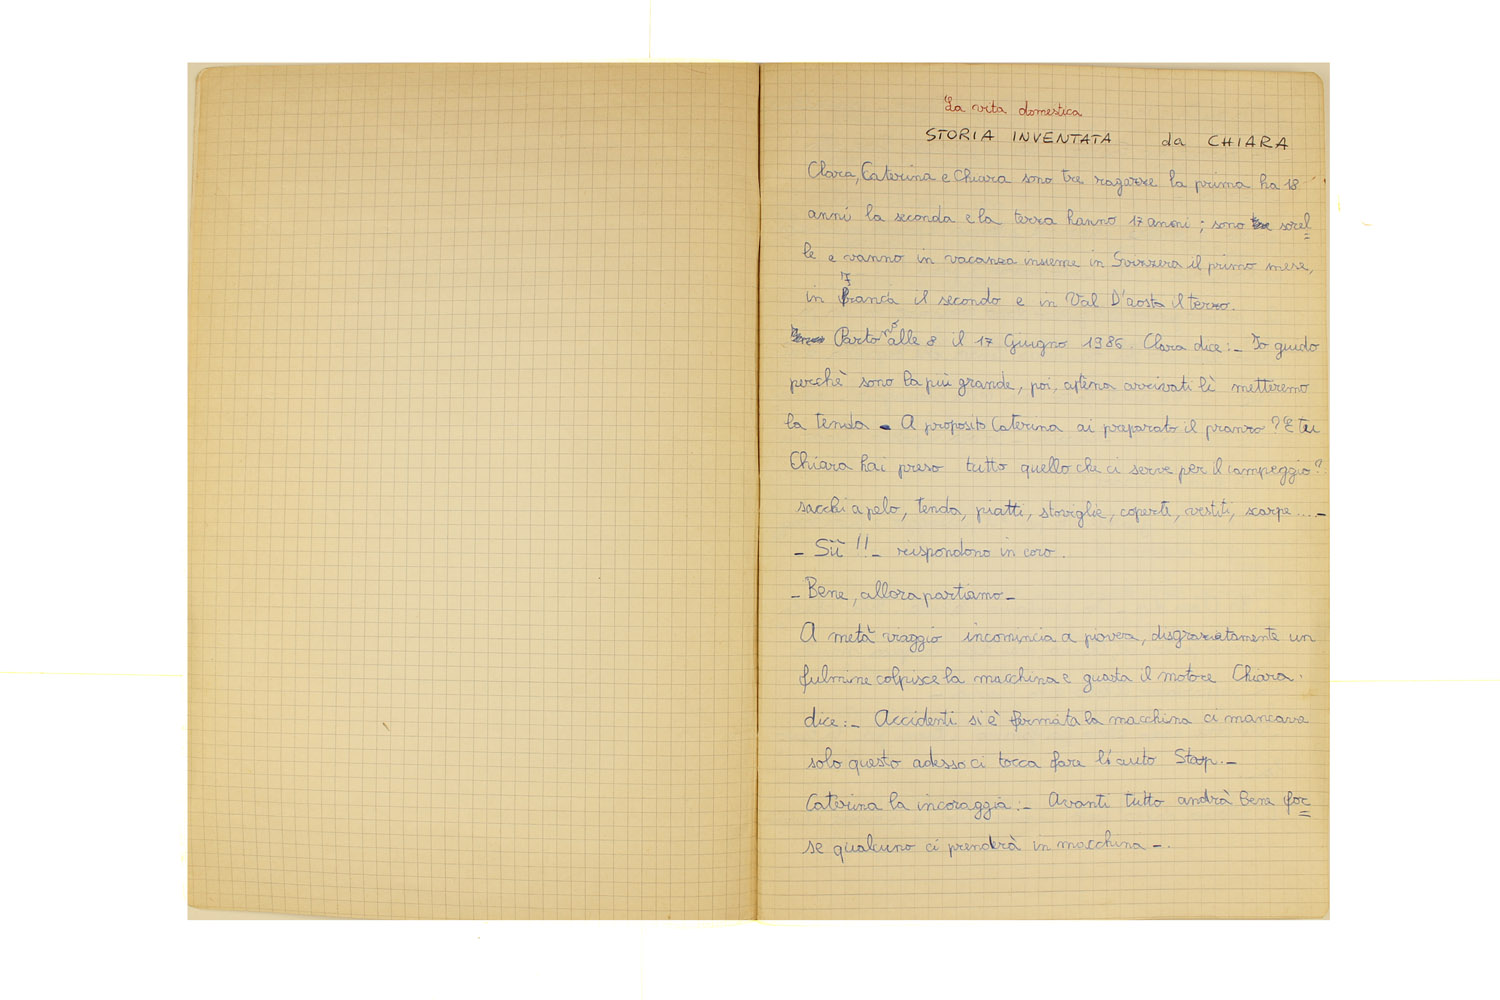 La vita domestica
STORIA INVENTATA da CHIARA
Clara, Caterina e Chiara sono tre ragazze la prima ha 18
anni la seconda e la terza hanno 17 anni ; sono sorel
le e vanno in vacanza insieme in Svizzera il primo mese,
in Francia il secondo e in Val D'aosta il terzo.
Partono alle 8 il 17 Giugno 1986. Clara dice:- Io guido
perchè sono la più grande, poi, appena arrivati lì metteremo
la tenda - A proposito Caterina ai preparato il pranzo ? E tu
Chiara hai preso tutto quello che ci serve per il campeggio?
sacchi a pelo, tenda, piatti, stoviglie, coperte, vestiti, scarpe....-
- Sìì !!- rispondono in coro.
- Bene, allora partiamo-
A metà viaggio incomincia a piovere, disgraziatamente un
fulmine colpisce la macchina e guasta il motore Chiara.
dice:- Accidenti si è fermata la macchina ci mancava
solo questo adesso ci tocca fare l'auto Stop.-
Caterina la incoraggia:- Avanti tutto andrà bene for
se qualcuno ci prenderà in macchina -.